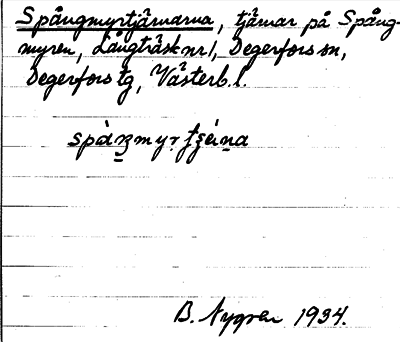 Spångmyrtjärnarna, tjärnar på Spång-
myren, Långträsk nr 1, Degerfors sn,
Degerfors tg, Västerb. l.
B. Nygren 1934.